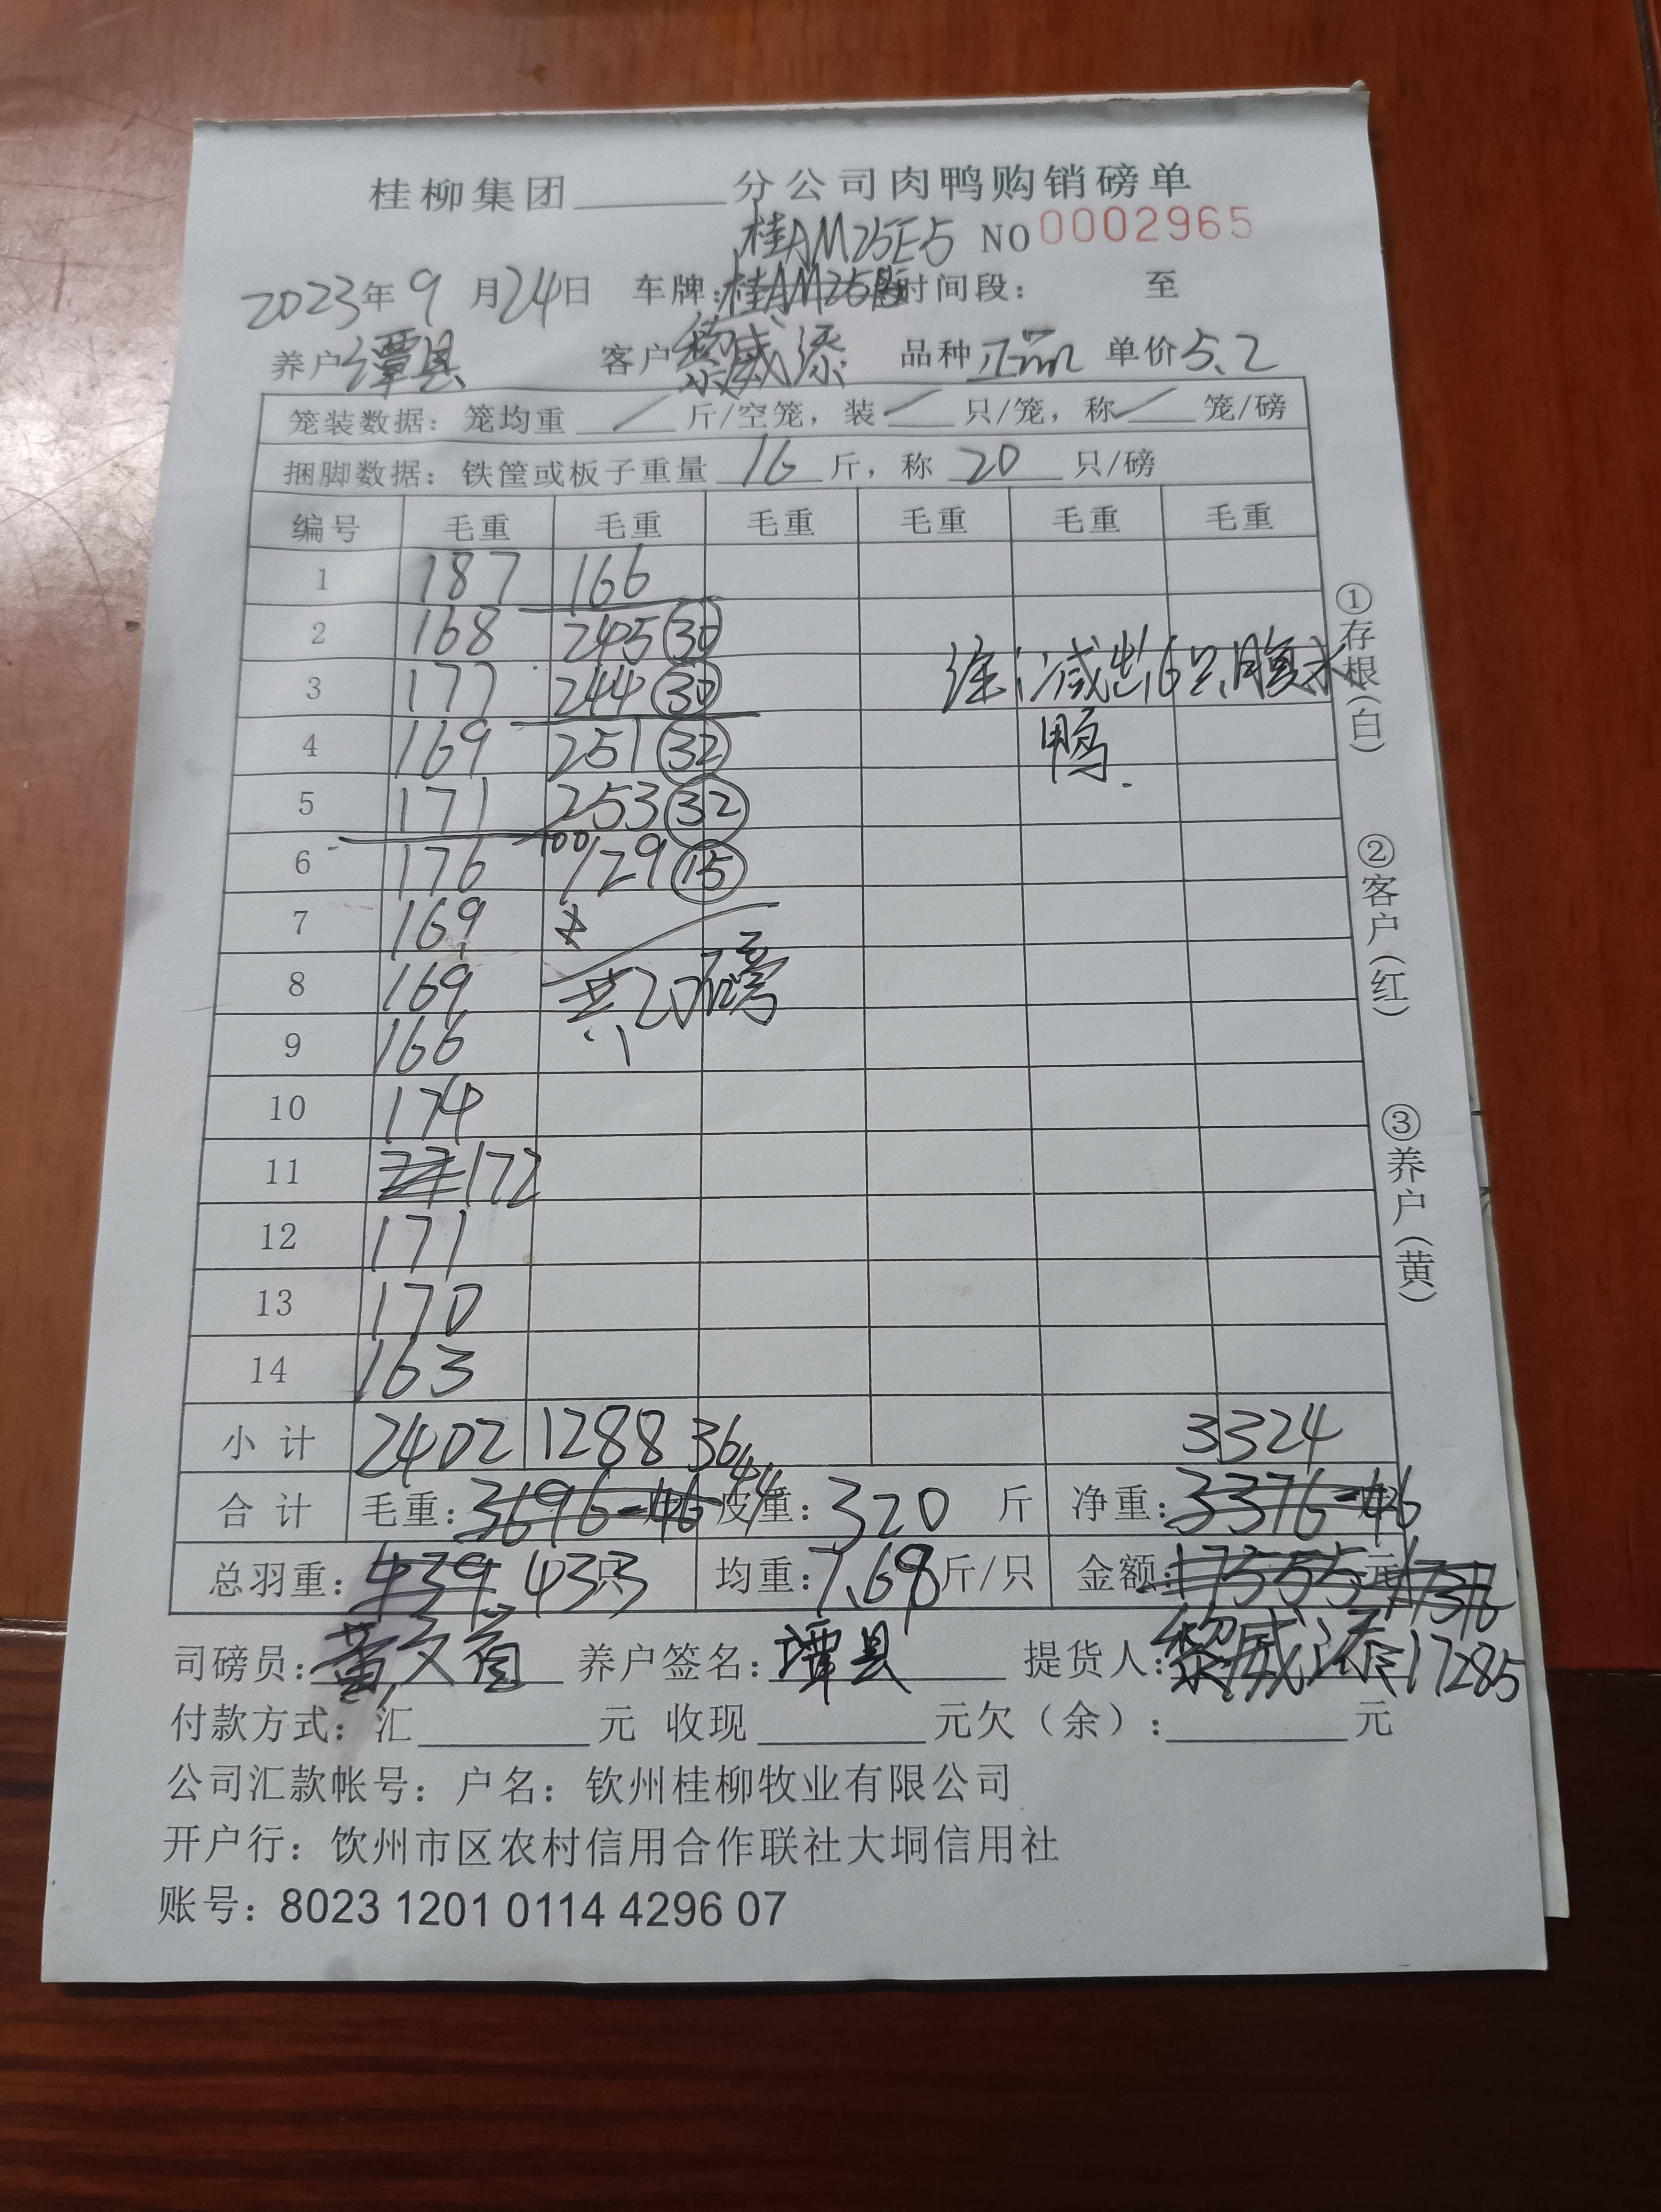 桂柳集团______分公司肉鸭购销磅单
桂AM25E5 NO 0002965
2023年9月24日 车牌: 时间段: 至
养户 谭县 客户 黎威添 品种 正品 单价 5.2
笼装数据: 笼均重 / 斤/空笼, 装 / 只/笼, 称 / 笼/磅
捆脚数据: 铁筐或板子重量 16 斤, 称 20 只/磅
编号 毛重 毛重 毛重 毛重 毛重 毛重
1 187 166
2 168 245 (30)
3 177 244 (30)
4 169 251 (32)
5 171 253 (32)
6 176 129 (15)
7 169
8 169 共20磅
9 166
10 174
11 172
12 171
13 170
14 163
减出6只腹水
鸭.
小计 2402 1288 3644 3324
合计 毛重: 3696-46 皮重: 320 斤 净重: 3376-46
总羽重: 439 433只 均重: 7.68斤/只 金额: 17555元
司磅员: 养户签名: 谭县 提货人: 黎威添 17285
付款方式: 汇______元 收现______元欠(余):______元
公司汇款帐号: 户名: 钦州桂柳牧业有限公司
开户行: 钦州市区农村信用合作联社大垌信用社
账号: 8023 1201 0114 4296 07
①存根(白)
②客户(红)
③养户(黄)